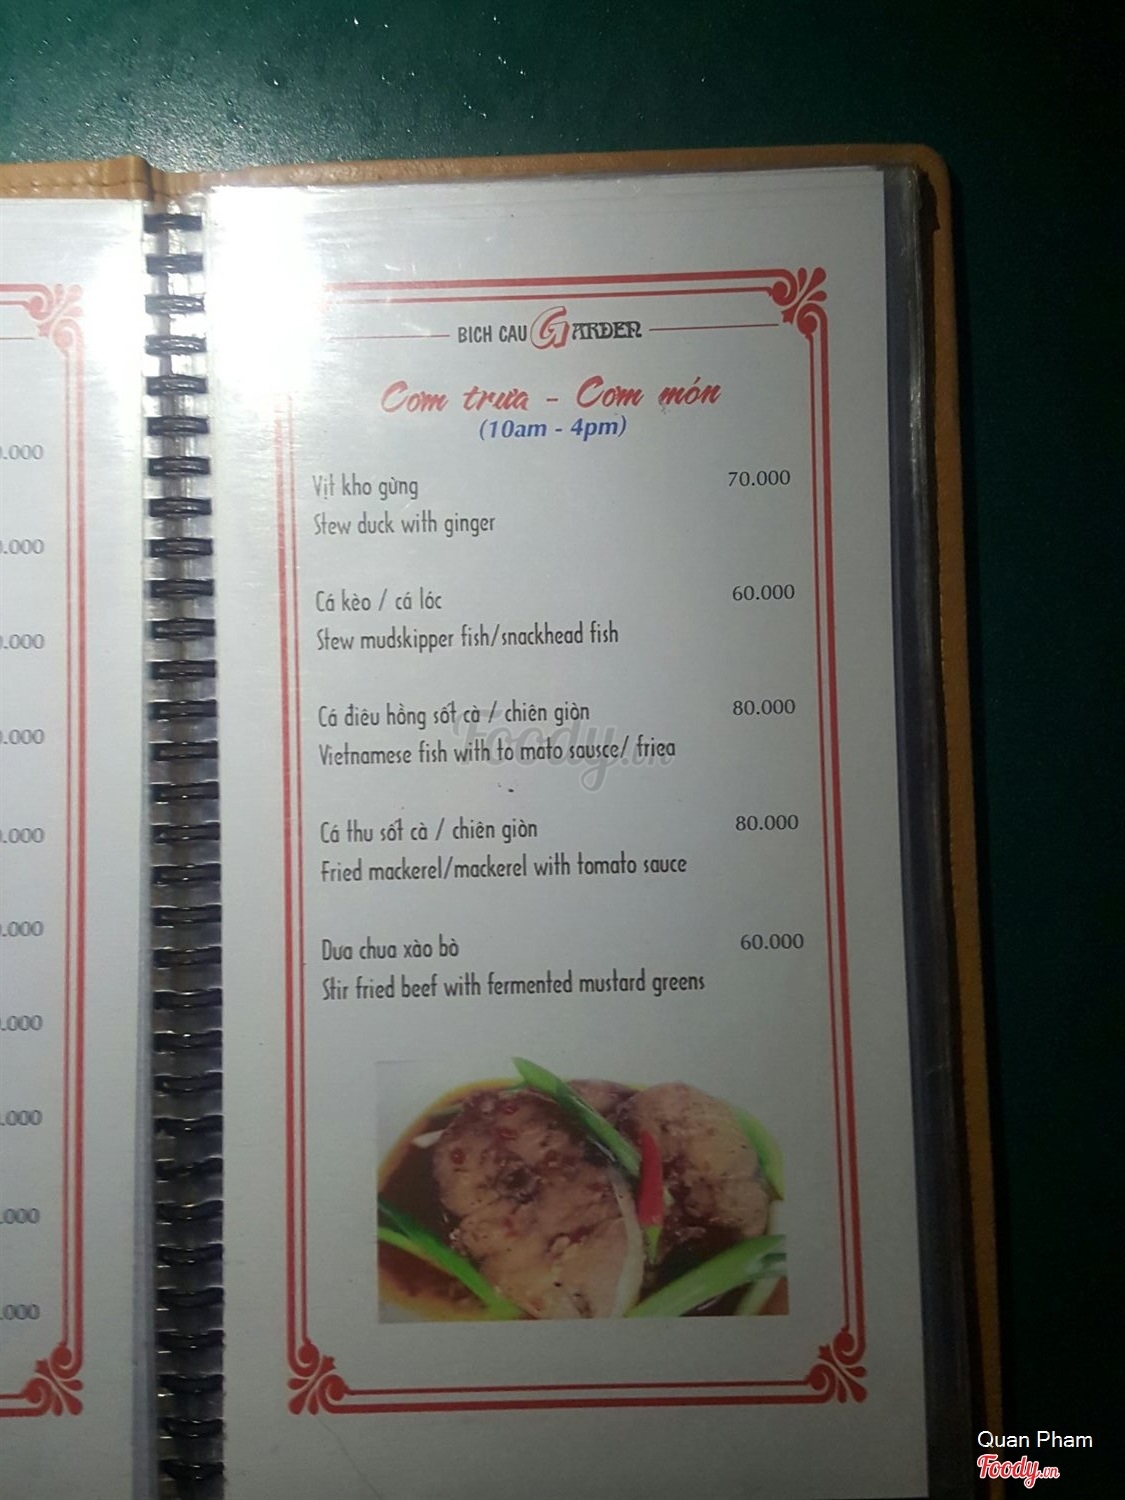 BICH CAU GARDEN
Cơm trưa - Cơm món
(10am - 4pm)
Vịt kho gừng 70.000
Stew duck with ginger
Cá kèo / cá lóc 60.000
Stew mudskipper fish/snackhead fish
Cá điêu hồng sốt cà / chiên giòn 80.000
Vietnamese fish with to mato sausce/ friea
Cá thu sốt cà / chiên giòn 80.000
Fried mackerel/mackerel with tomato sauce
Dưa chua xào bò 60.000
Stir fried beef with fermented mustard greens
Foody.vn
.000
.000
.000
.000
.000
.000
.000
.000
.000
.000
Quan Pham
Foody.vn